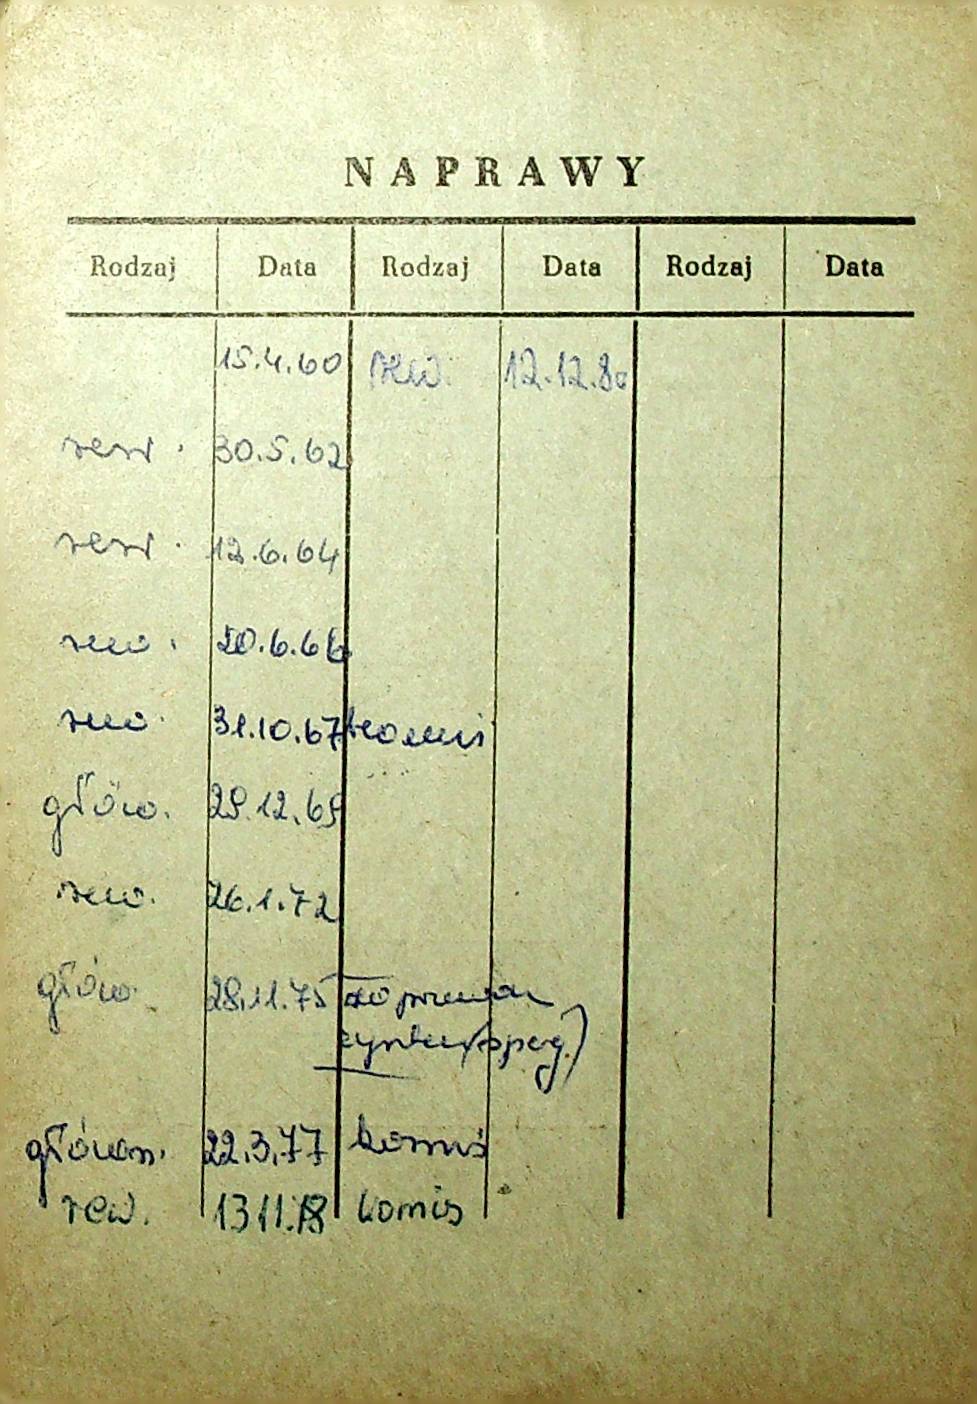 NAPRAWY
Rodzaj Data Rodzaj Data Rodzaj Data
15.4.60 rew. 12.12.80
rew. 30.5.62
rew. 12.6.64
rew. 20.6.66
rew. 31.10.67 komis
głów. 29.12.69
rew. 26.1.72
głów. 28.11.75
główn. 22.3.77 komis
rew. 13 11.78 komis